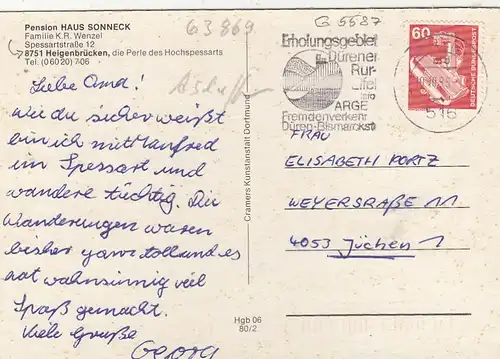 Pension HAUS SONNECK
Familie K.R. Wenzel
Spessartstraße 12
8751 Heigenbrücken, die Perle des Hochspessarts
Tel. (06020) 706
G3869
G 5587
Liebe Oma!
Wie du sicher weißt
bin ich mit Manfred
im Spessart und
wandere tüchtig. Die
Wanderungen waren
bisher ganz toll und es
hat wahnsinnig viel
Spaß gemacht.
Viele Grüße
Georg
Cramers Kunstanstalt Dortmund
Hgb 06
80/2
Erholungsgebiet
Dürener
Rur-
Eifel
ARGE
Fremdenverkehr
Düren-Bismarckstr
60
DEUTSCHE BUNDESPOST
516
FRAU
ELISABETH PORTZ
WEYERSRAßE 11
4053 Jüchen 1